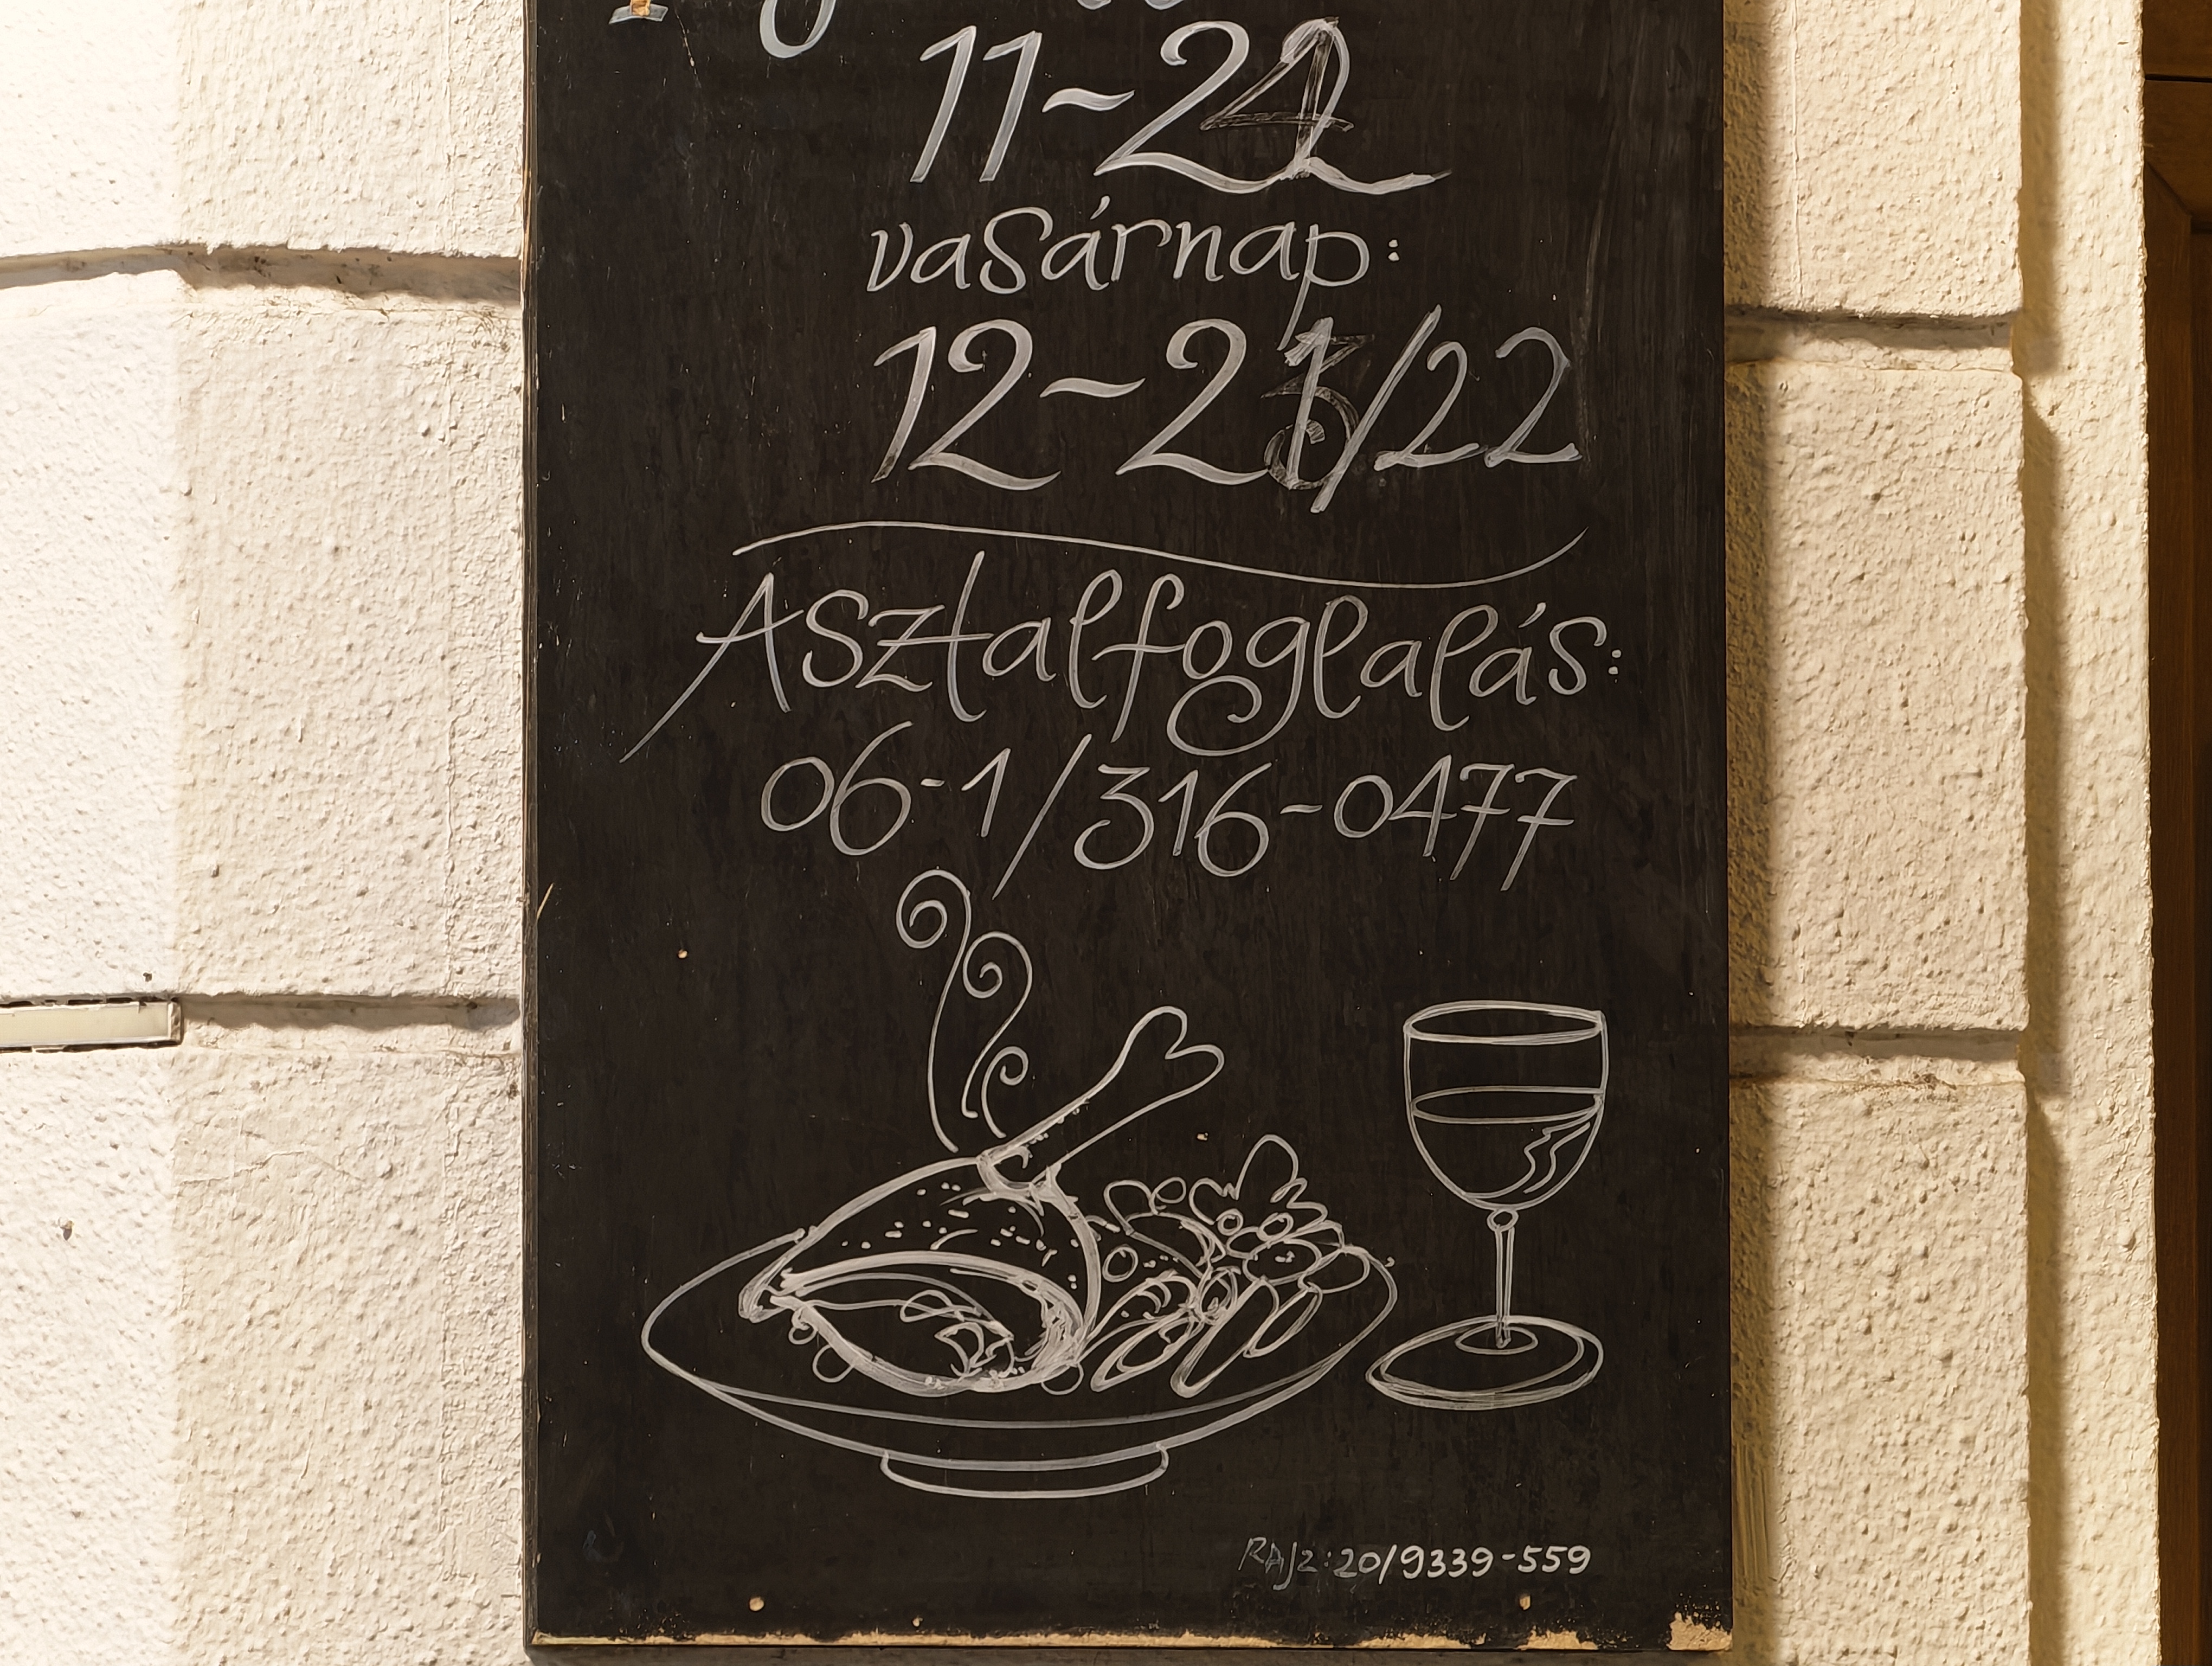 11-22
vasárnap:
12-21/22
Asztalfoglalás:
06-1/316-0477
RAJZ: 20/9339-559